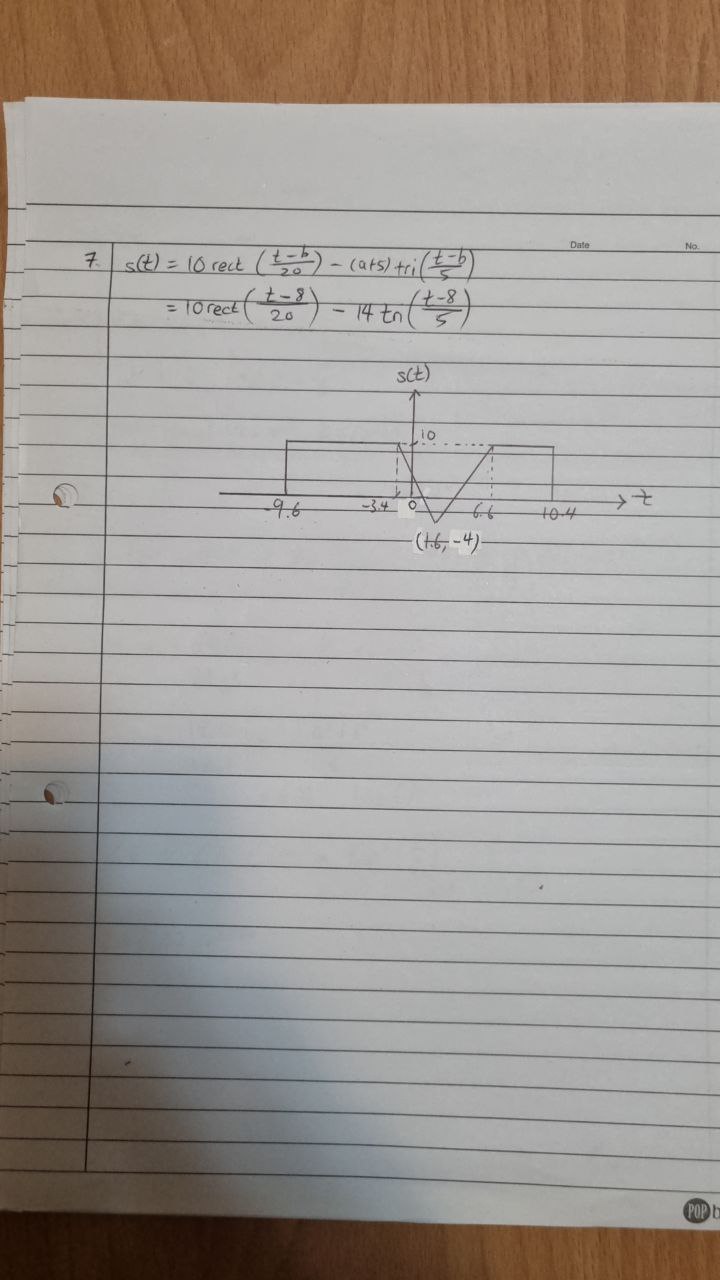 Date No.
7. s(t) = 10 rect ((t-b)/20) - (a+5) tri((t-b)/5)
= 10 rect ((t-8)/20) - 14 tri((t-8)/5)
s(t)
10
t
-9.6 -3.4 0 6.6 10.4
(1.6, -4)
POP b